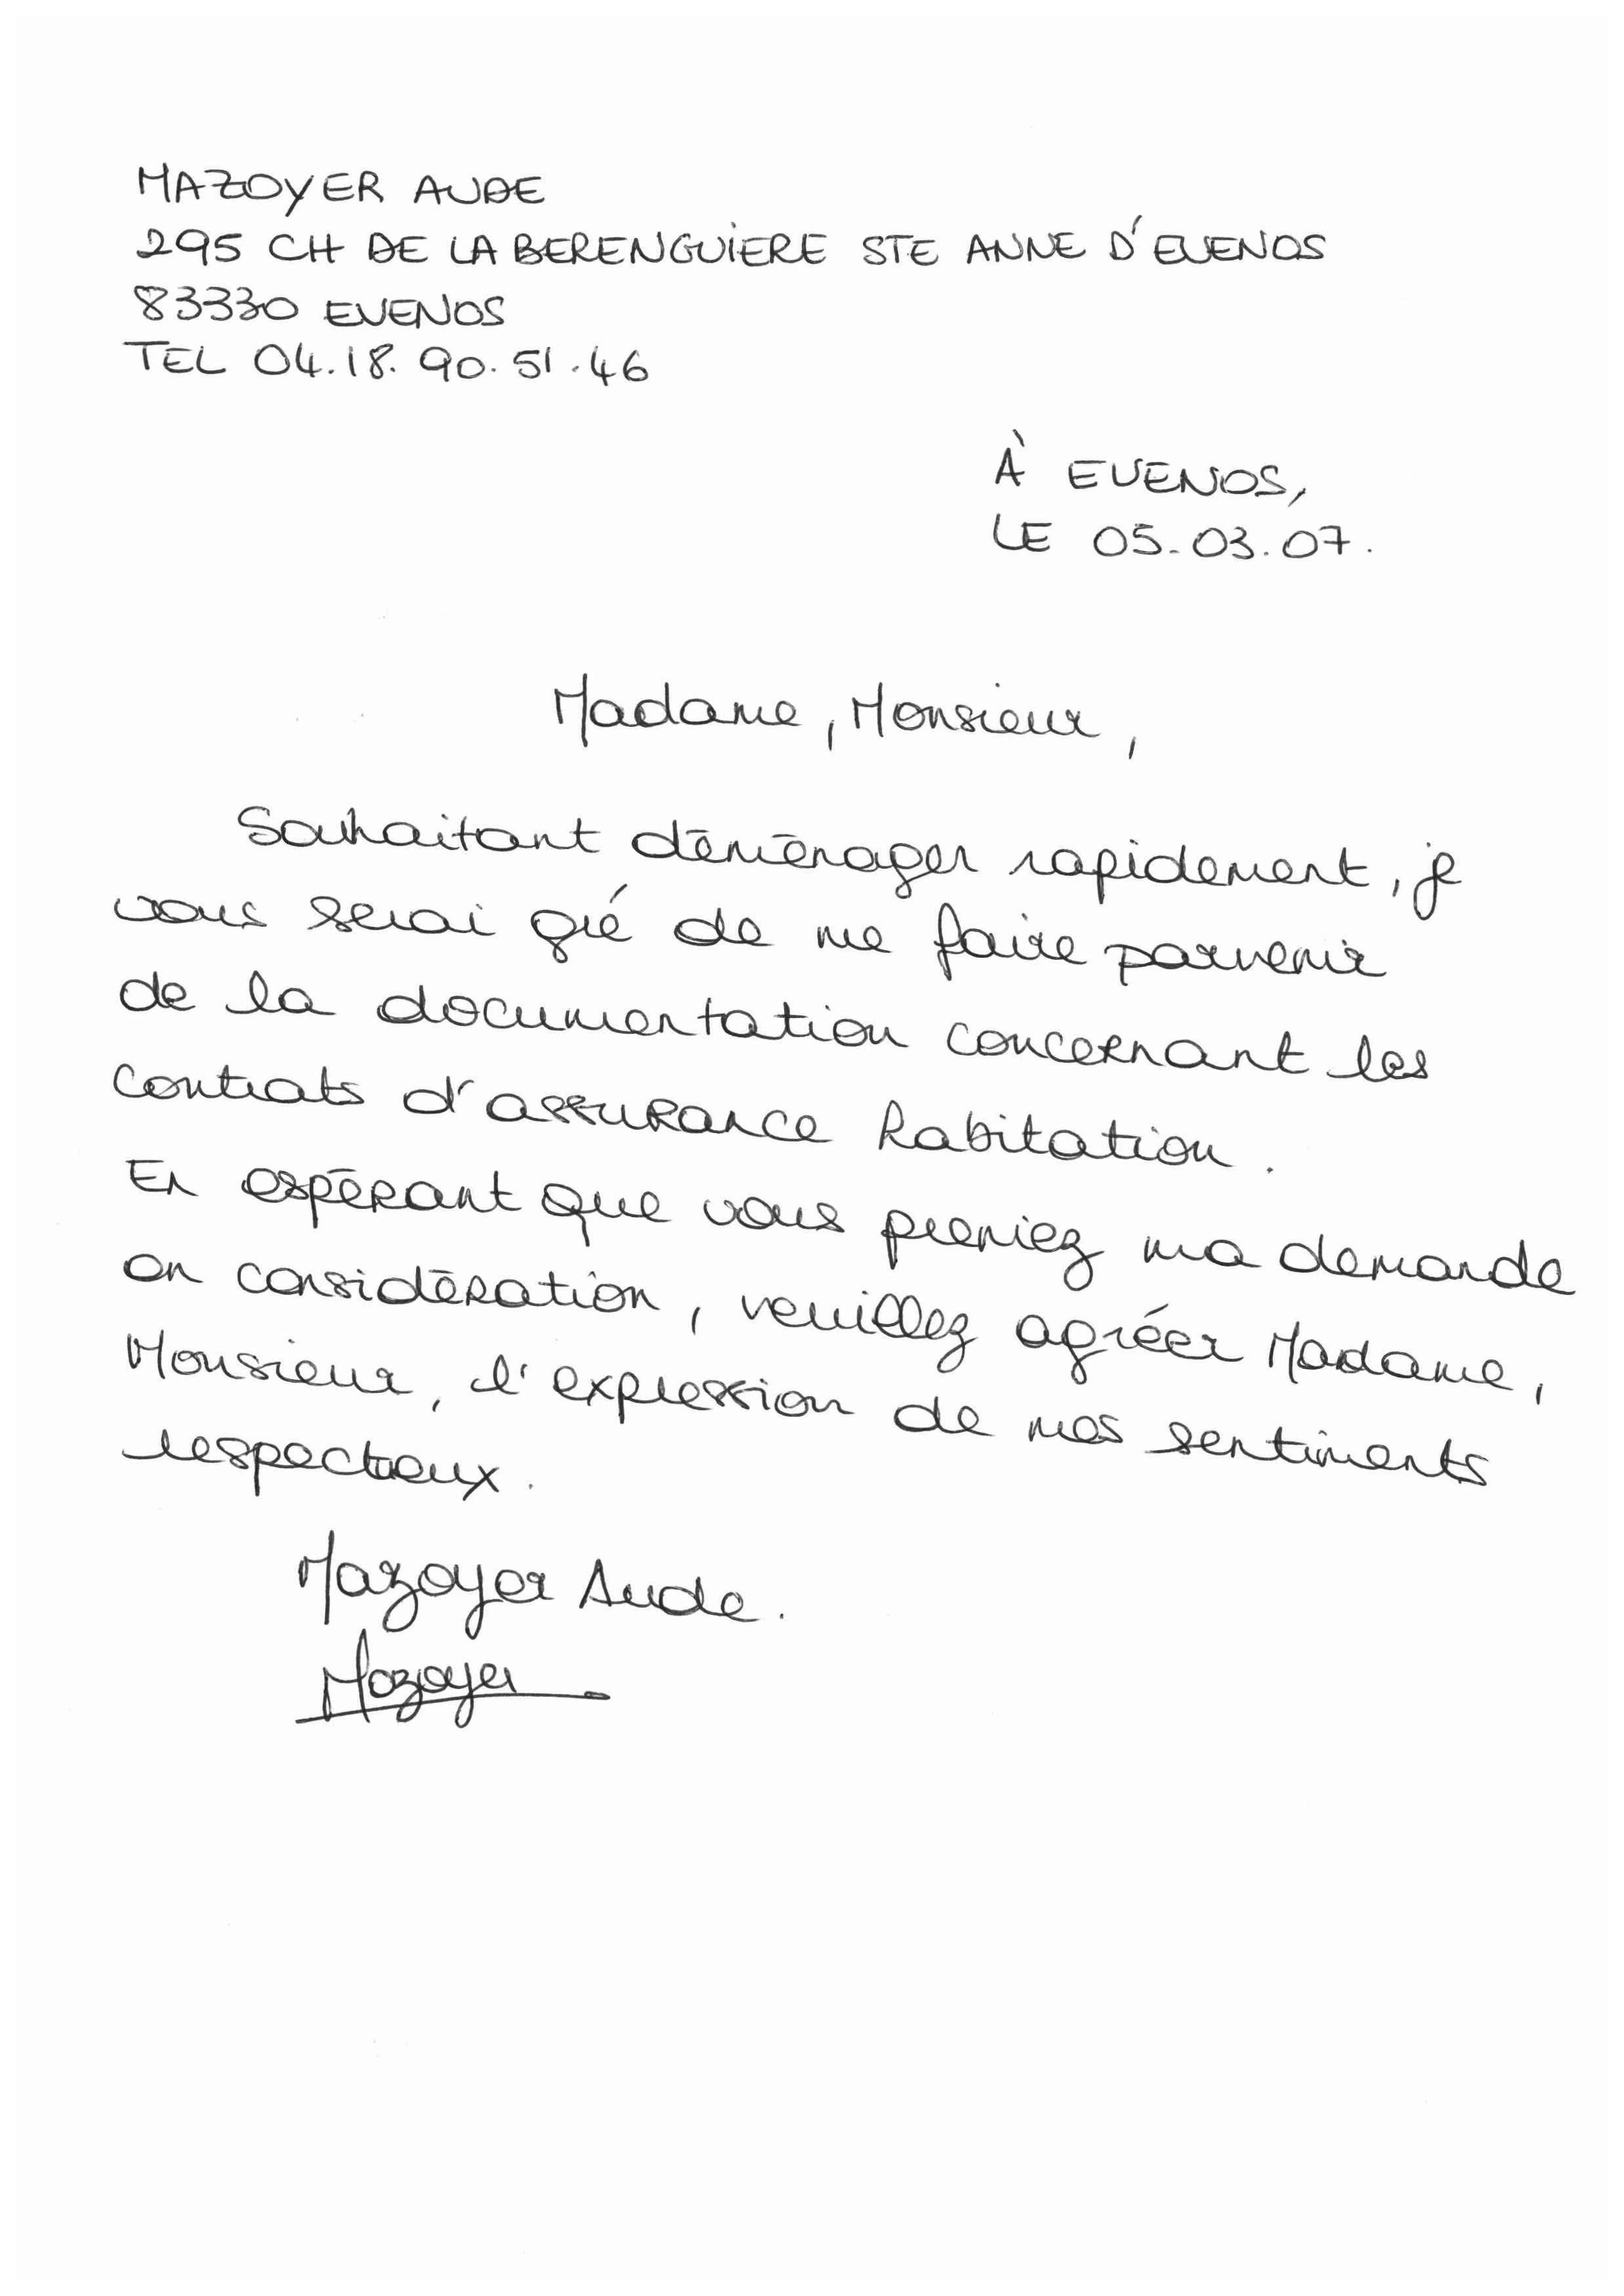 MAZOYER AUDE
295 CH DE LA BERENGUIERE STE ANNE D'EVENOS
83330 EVENOS
TEL 04.18.90.51.46
À EVENOS,
LE 05.03.07.
Madame, Monsieur,
Souhaitant déménager rapidement, je
vous serai gré de me faire parvenir
de la documentation concernant les
contrats d'assurance habitation.
En espérant que vous preniez ma demande
en considération, veuillez agréer Madame,
Monsieur, l'expression de mes sentiments
respectueux.
Mazoyer Aude.
Mazoyer